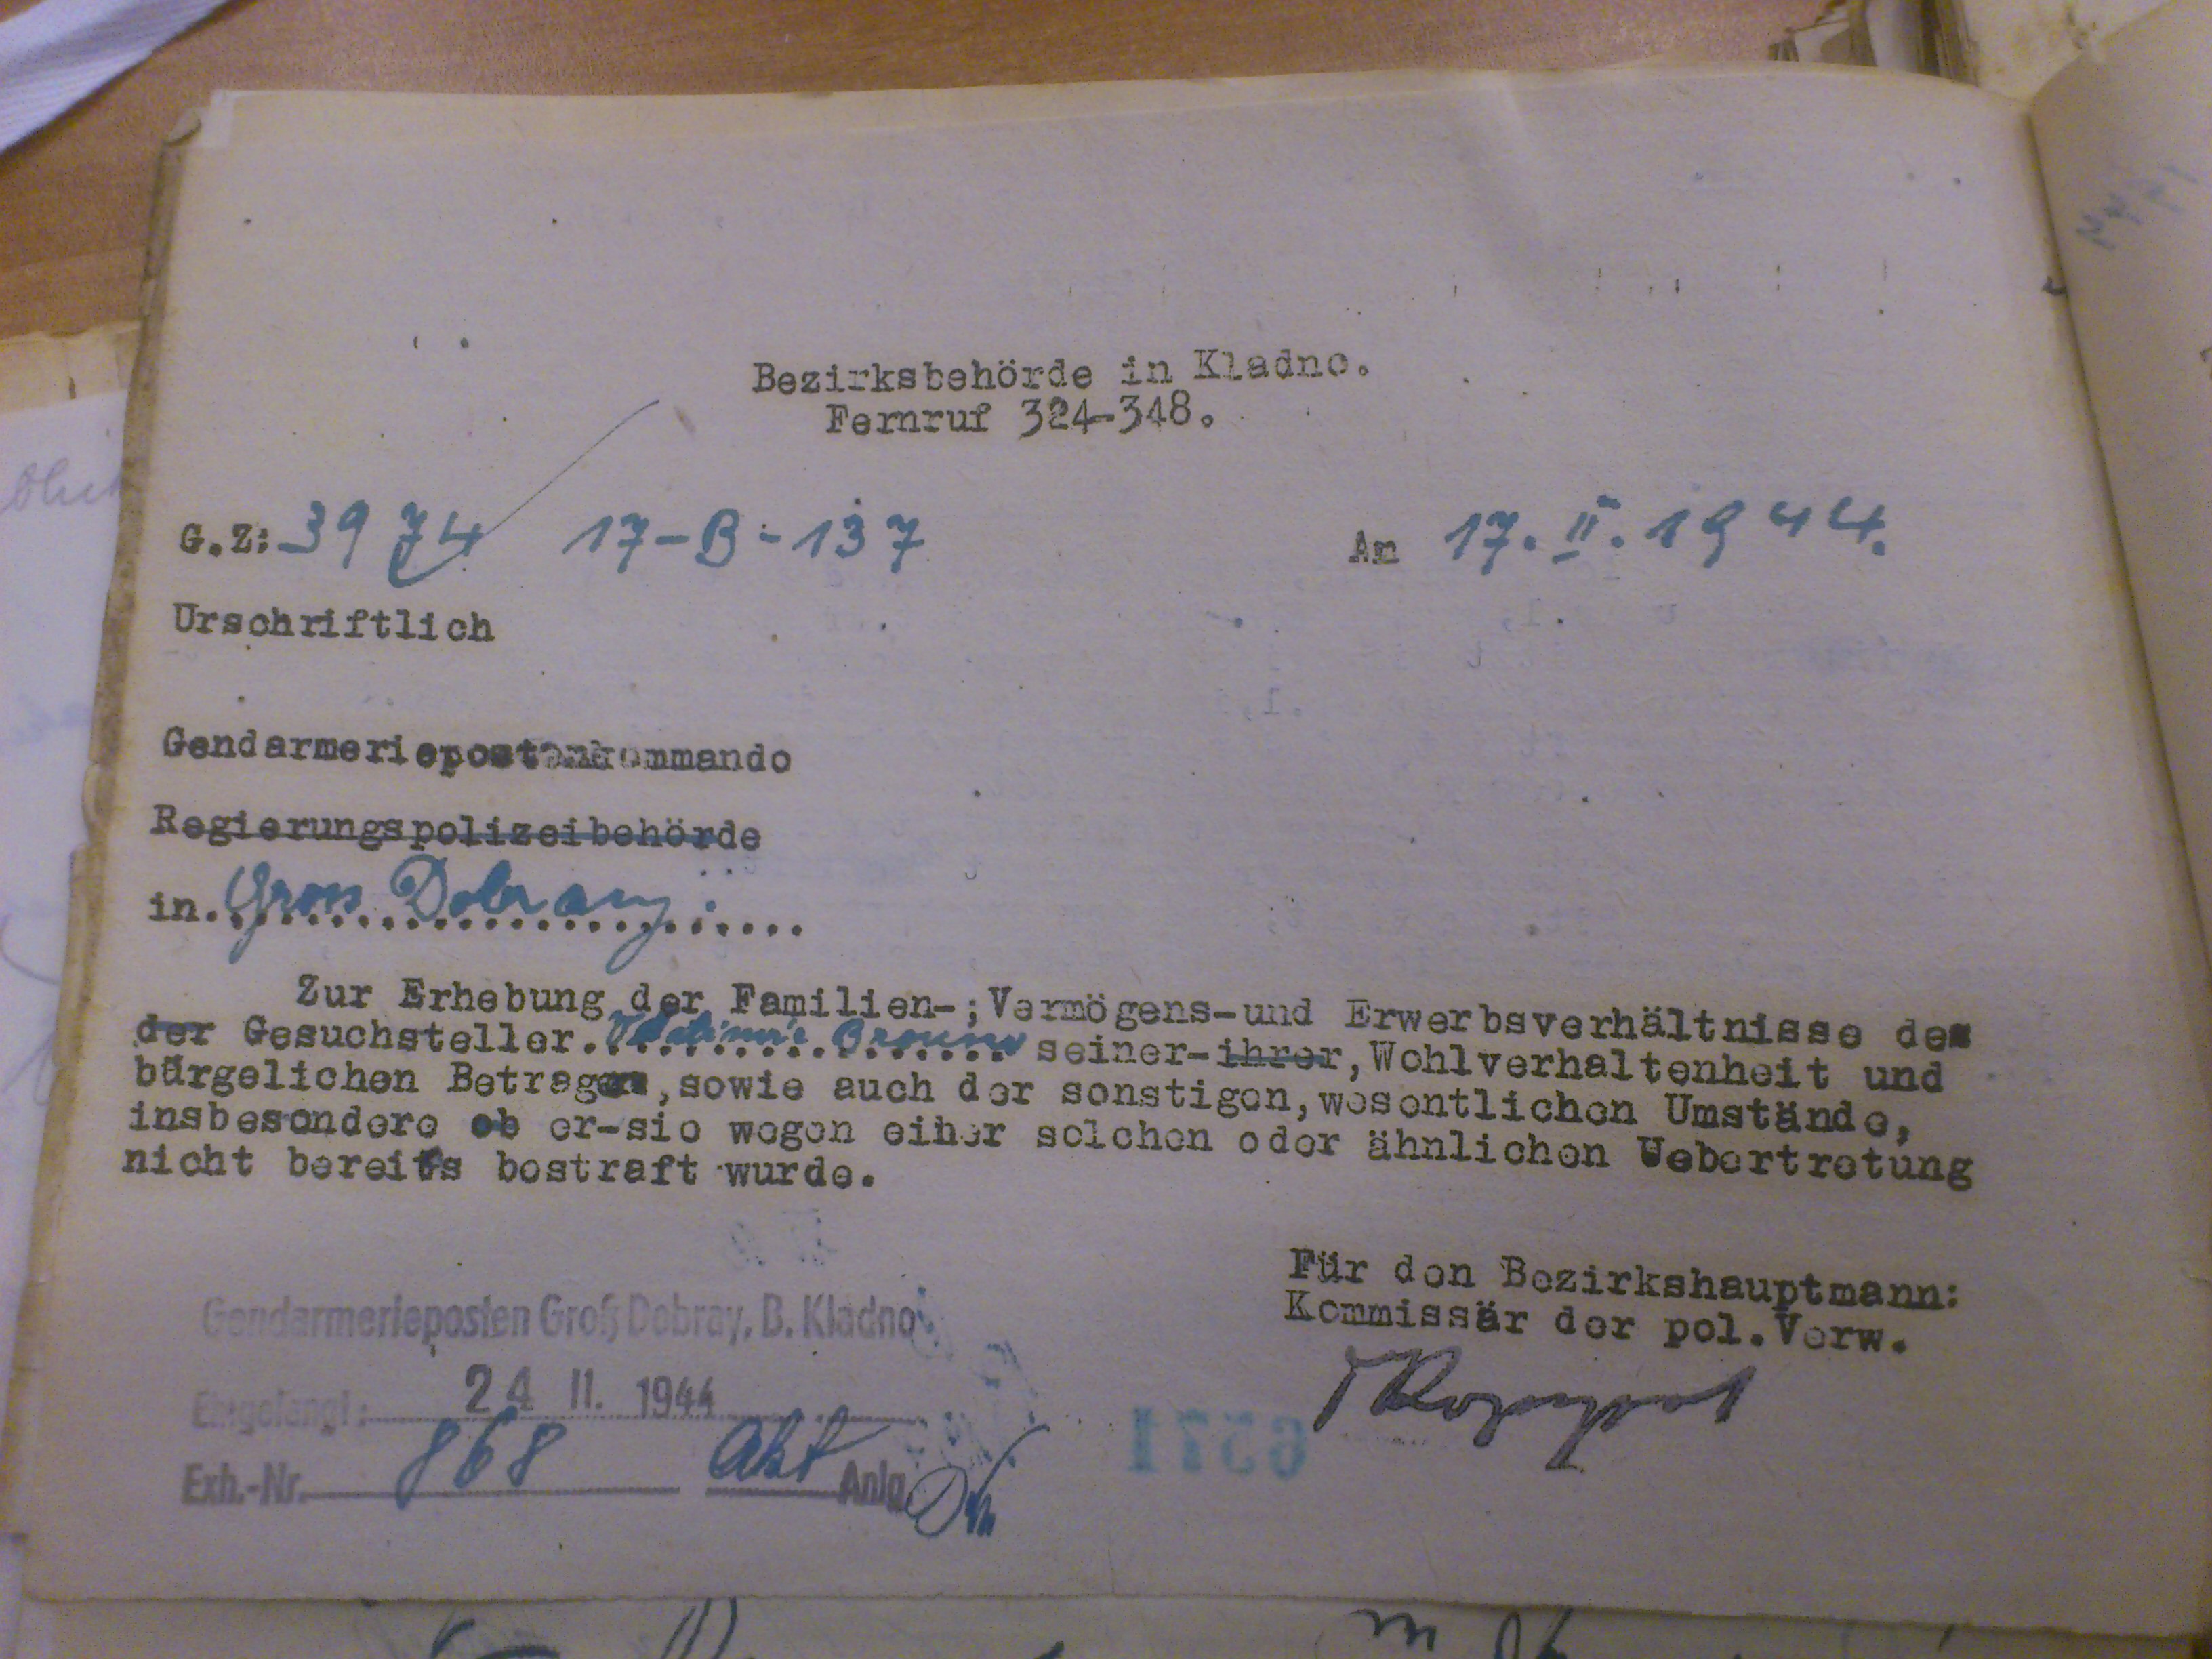 Bezirksbehörde in Kladno.
Fernruf 324-348.
G.Z: 3974 17-B-137 Am 17. II. 1944.
Urschriftlich
Gendarmeriepostenkommando
Regierungspolizeibehörde
in. Gross Dobray.
Zur Erhebung der Familien-;Vermögens-und Erwerbsverhältnisse des
der Gesuchsteller. seiner-ihrer,Wohlverhaltenheit und
bürgelichen Betragen,sowie auch der sonstigen,wesentlichen Umstände,
insbesondere ob er-sie wegen einer solchen oder ähnlichen Uebertretung
nicht bereits bestraft wurde.
Für den Bezirkshauptmann:
Kommissär der pol.Verw.
Gendarmerieposten Groß Dobray, B. Kladno
Eingelangt: 24 II. 1944
Exh.-Nr. 868 Akt Anlg.
6571